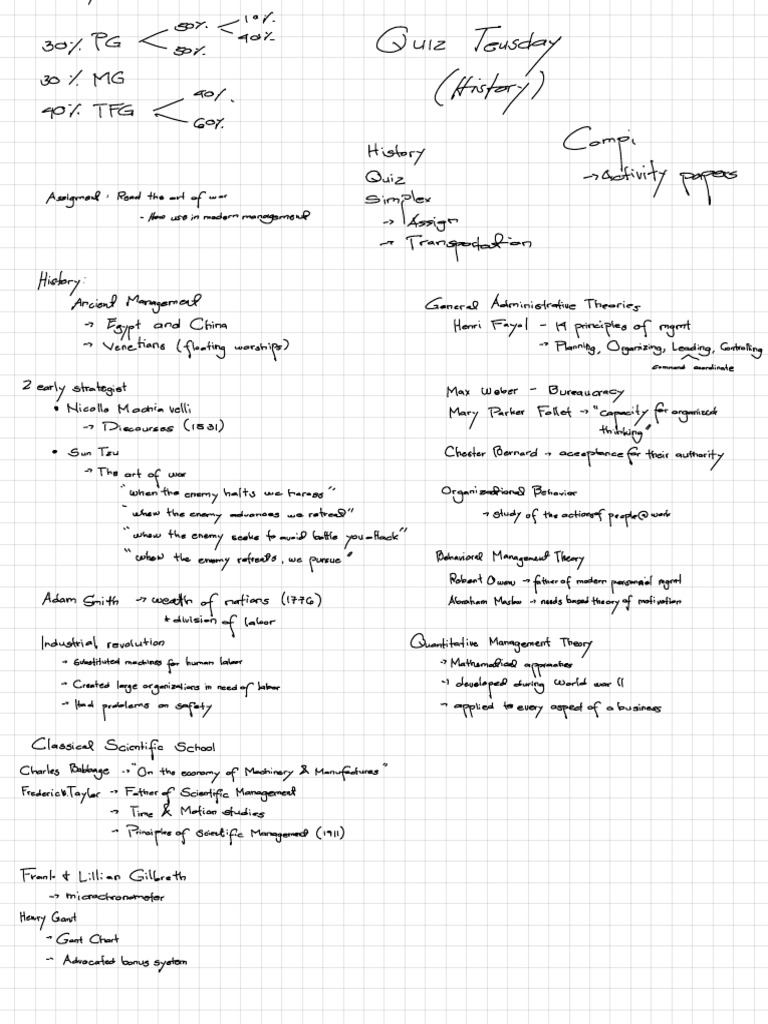 30% PG
50%
10%
40%
50%
30% MG
40% TFG
40%
60%
Quiz Teusday
(History)
History
Quiz
Simplex
→ Assign
→ Transpotation
Compi
→ Activity papers
Assigment: Read the art of war
- How use in modern management
History:
Ancient Management
→ Egypt and China
→ Venetians (floating warships)
2 early strategist
• Nicollo Machiavelli
→ Discourses (1531)
• Sun Tzu
→ The art of war
"when the enemy halts we harass"
"when the enemy advances we retreat"
"when the enemy seeks to avoid battle you attack"
"when the enemy retreats, we pursue"
Adam Smith → wealth of nations (1776)
* division of labor
Industrial revolution
→ Substituted machines for human labor
→ Created large organizations in need of labor
→ Had problems on safety
Classical Scientific School
Charles Babbage → "On the economy of Machinery & Manufactures"
Frederick Taylor → Father of Scientific Management
→ Time & Motion studies
→ Principles of Scientific Management (1911)
Frank & Lillian Gilbreth
→ microchronometer
Henry Gant
→ Gant Chart
→ Advocated bonus system
General Administrative Theories
Henri Fayol - 14 principles of mgmt
→ Planning, Organizing, Leading, Controlling
command coordinate
Max Weber - Bureaucracy
Mary Parker Follet → "capacity for organized
thinking"
Chester Bernard → aceptance for their authority
Organizational Behavior
→ study of the actions of people @ work
Behavioral Management Theory
Robert Owen → father of modern personnel mgmt
Abraham Maslow → needs based theory of motivation
Quantitative Management Theory
→ Mathematical approaches
→ developed during World war II
→ applied to every aspect of a business